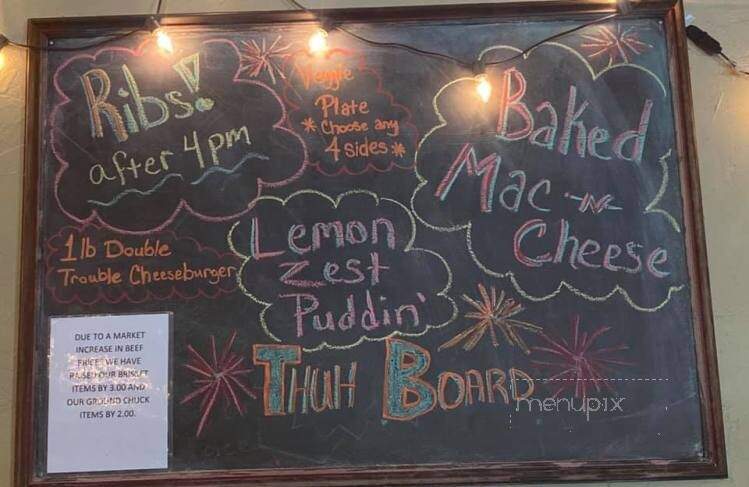 Ribs!
after 4pm
Veggie
Plate
* Choose any
4 sides *
Baked
Mac-N-
Cheese
1lb Double
Trouble Cheeseburger
Lemon
Zest
Puddin'
DUE TO A MARKET
INCREASE IN BEEF
PRICES WE HAVE
RAISED OUR BRISKET
ITEMS BY 3.00 AND
OUR GROUND CHUCK
ITEMS BY 2.00.
THUH BOARD
menupix